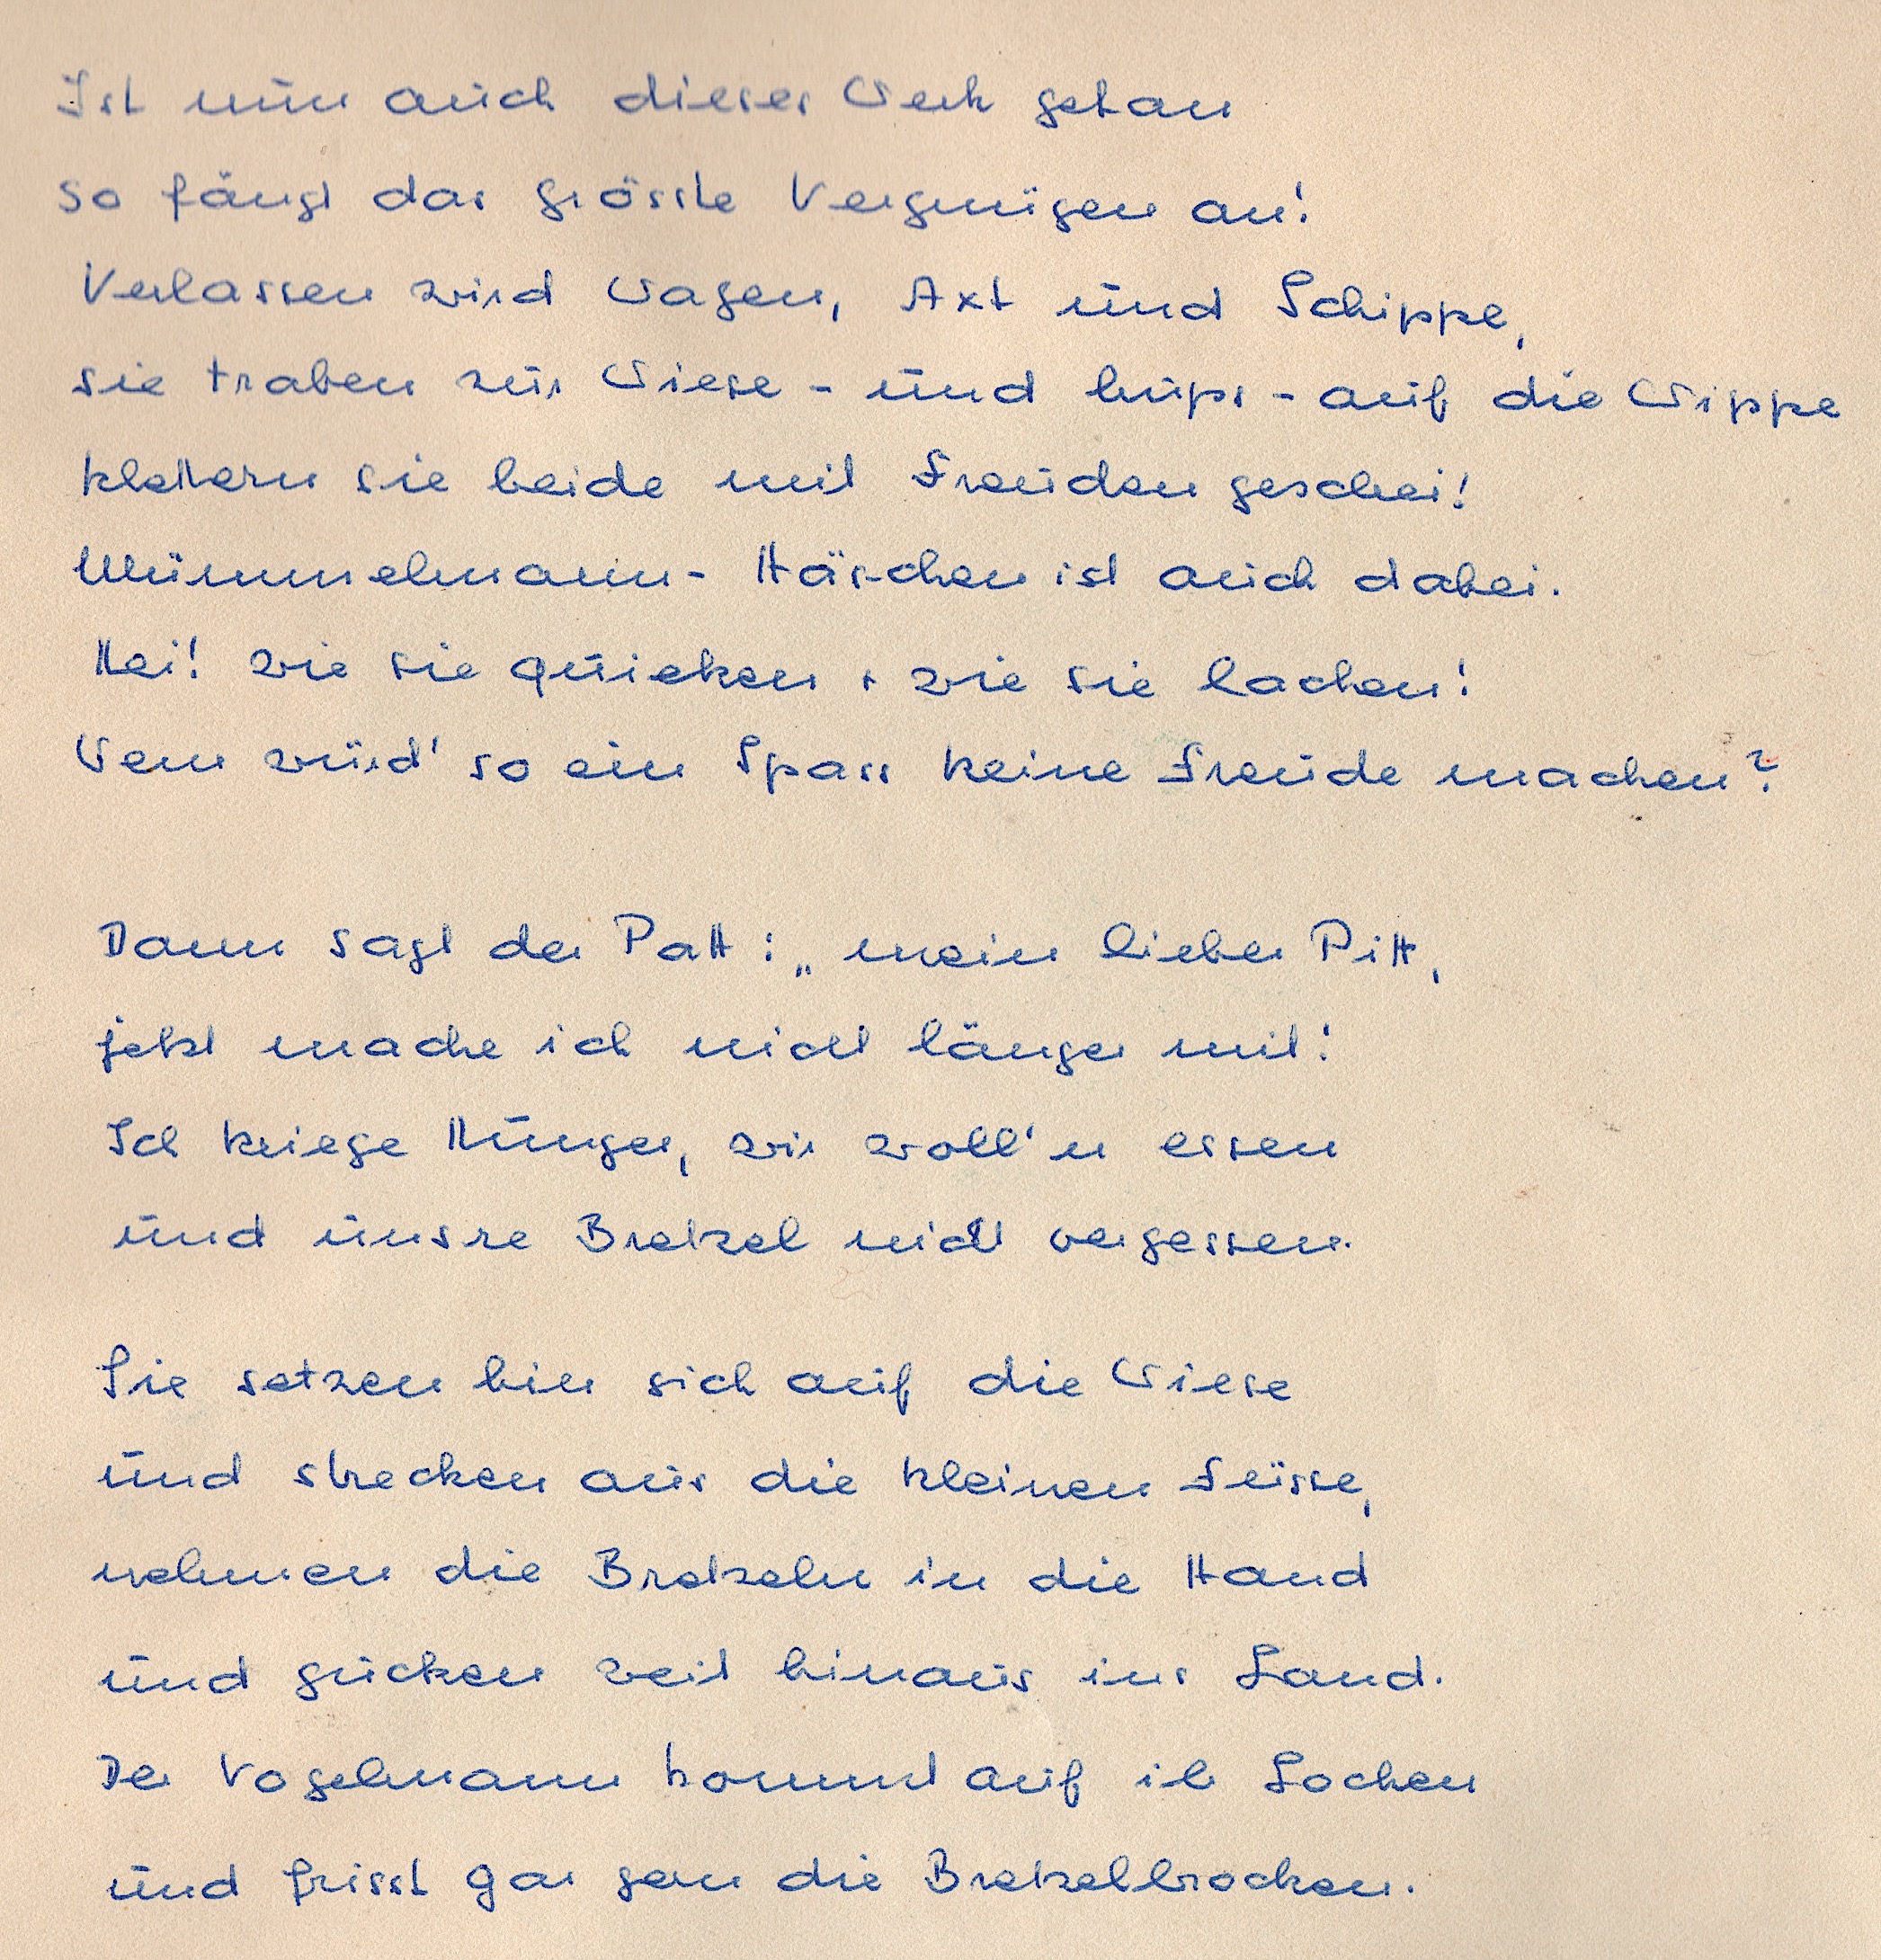 Ist nun auch dieses Werk getan
so fängt das grösste Vergnügen an!
Verlassen wird Wagen, Axt und Schippe,
sie traben zur Wiese - und hups - auf die Wippe
klettern sie beide mit Freudengeschrei!
Mümmelmann - Häschen ist auch dabei.
Hei! wie sie quieken + wie sie lachen!
Wem würd' so ein Spass keine Freude machen?
Dann sagt der Patt: „mein lieber Pitt,
jetzt mache ich nicht länger mit!
Ich kriege Hunger, wir woll'n essen
und unsre Bretzel nicht vergessen.
Sie setzen hin sich auf die Wiese
und strecken aus die kleinen Füsse,
nehmen die Bretzeln in die Hand
und gucken weit hinaus ins Land.
Der Vogelmann kommt auf ihr Locken
und frisst gar gern die Bretzelbrocken.